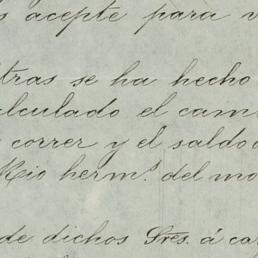 s acepte para v
tras se ha hecho
alculado el cam
correr y el saldo
Rio herm.s del mo
de dichos Sres. á ca